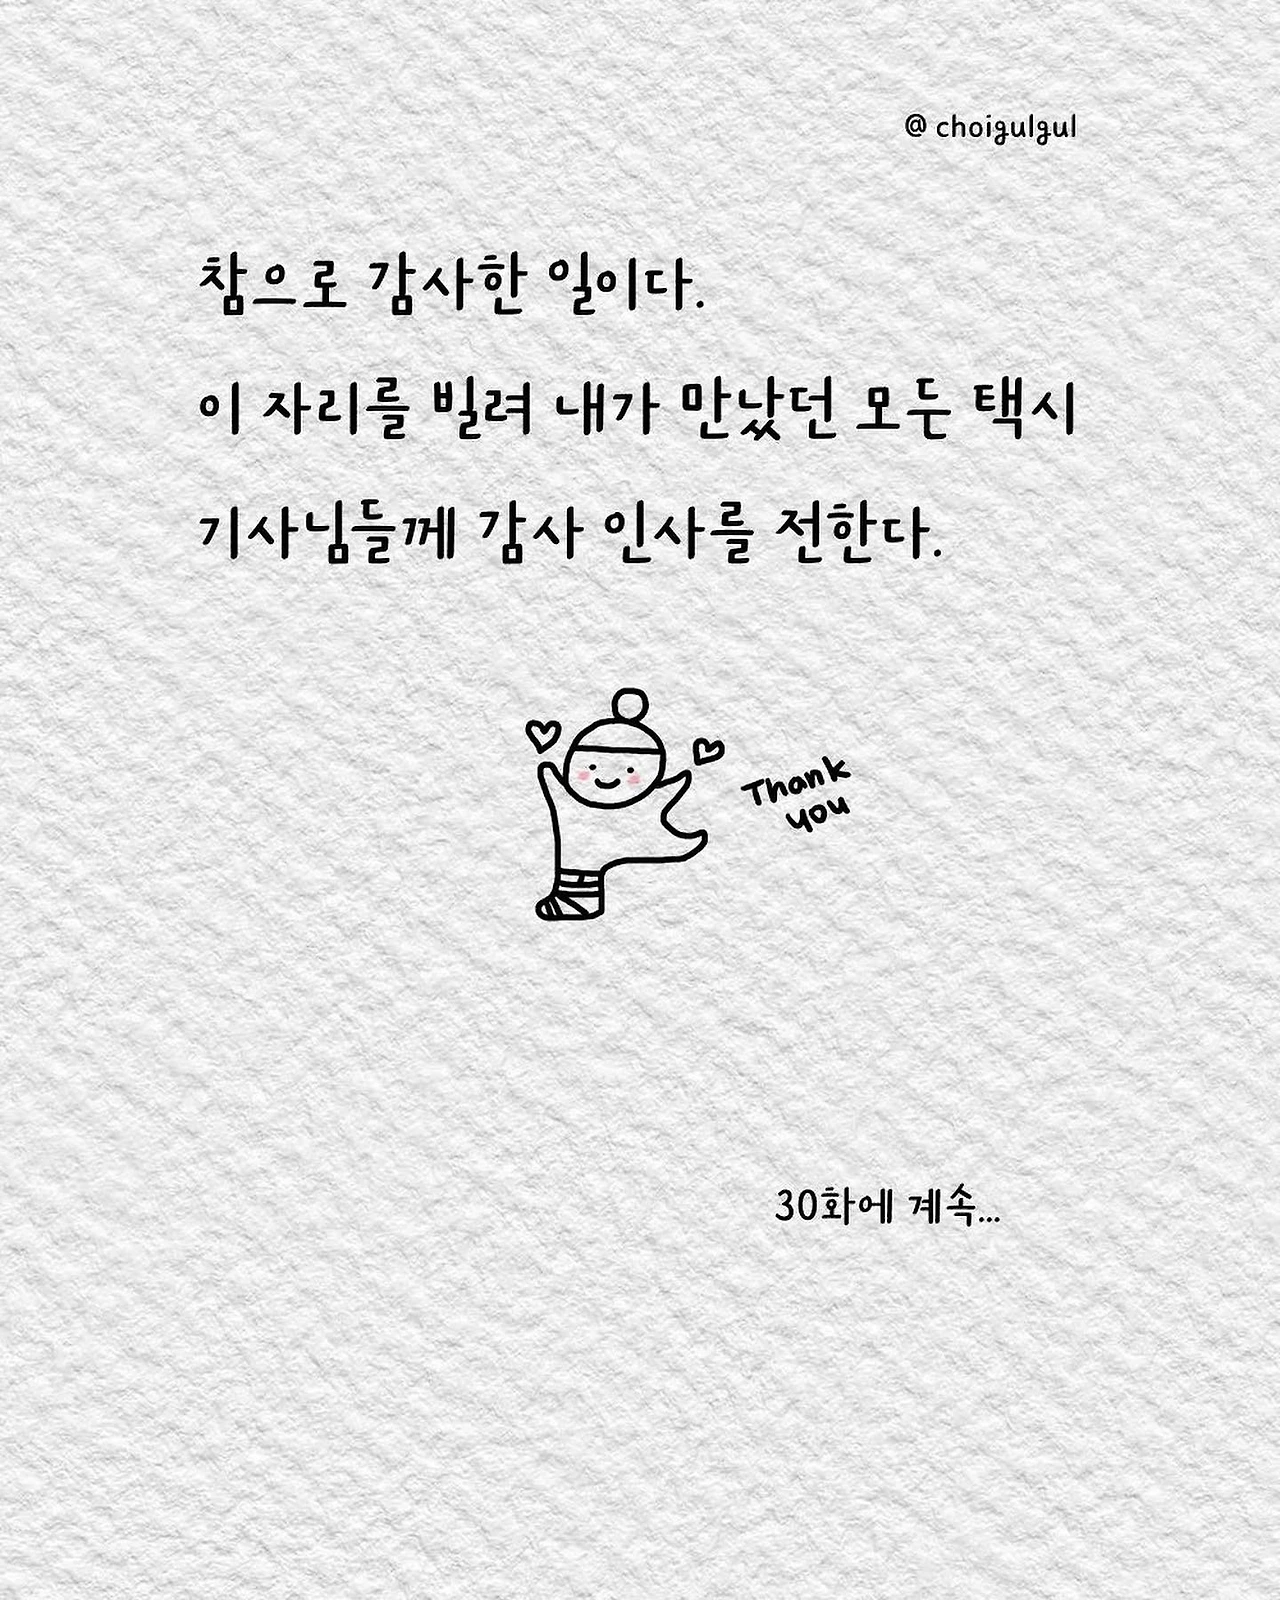 @ choigulgul
참으로 감사한 일이다.
이 자리를 빌려 내가 만났던 모든 택시
기사님들께 감사 인사를 전한다.
Thank
you
30화에 계속...